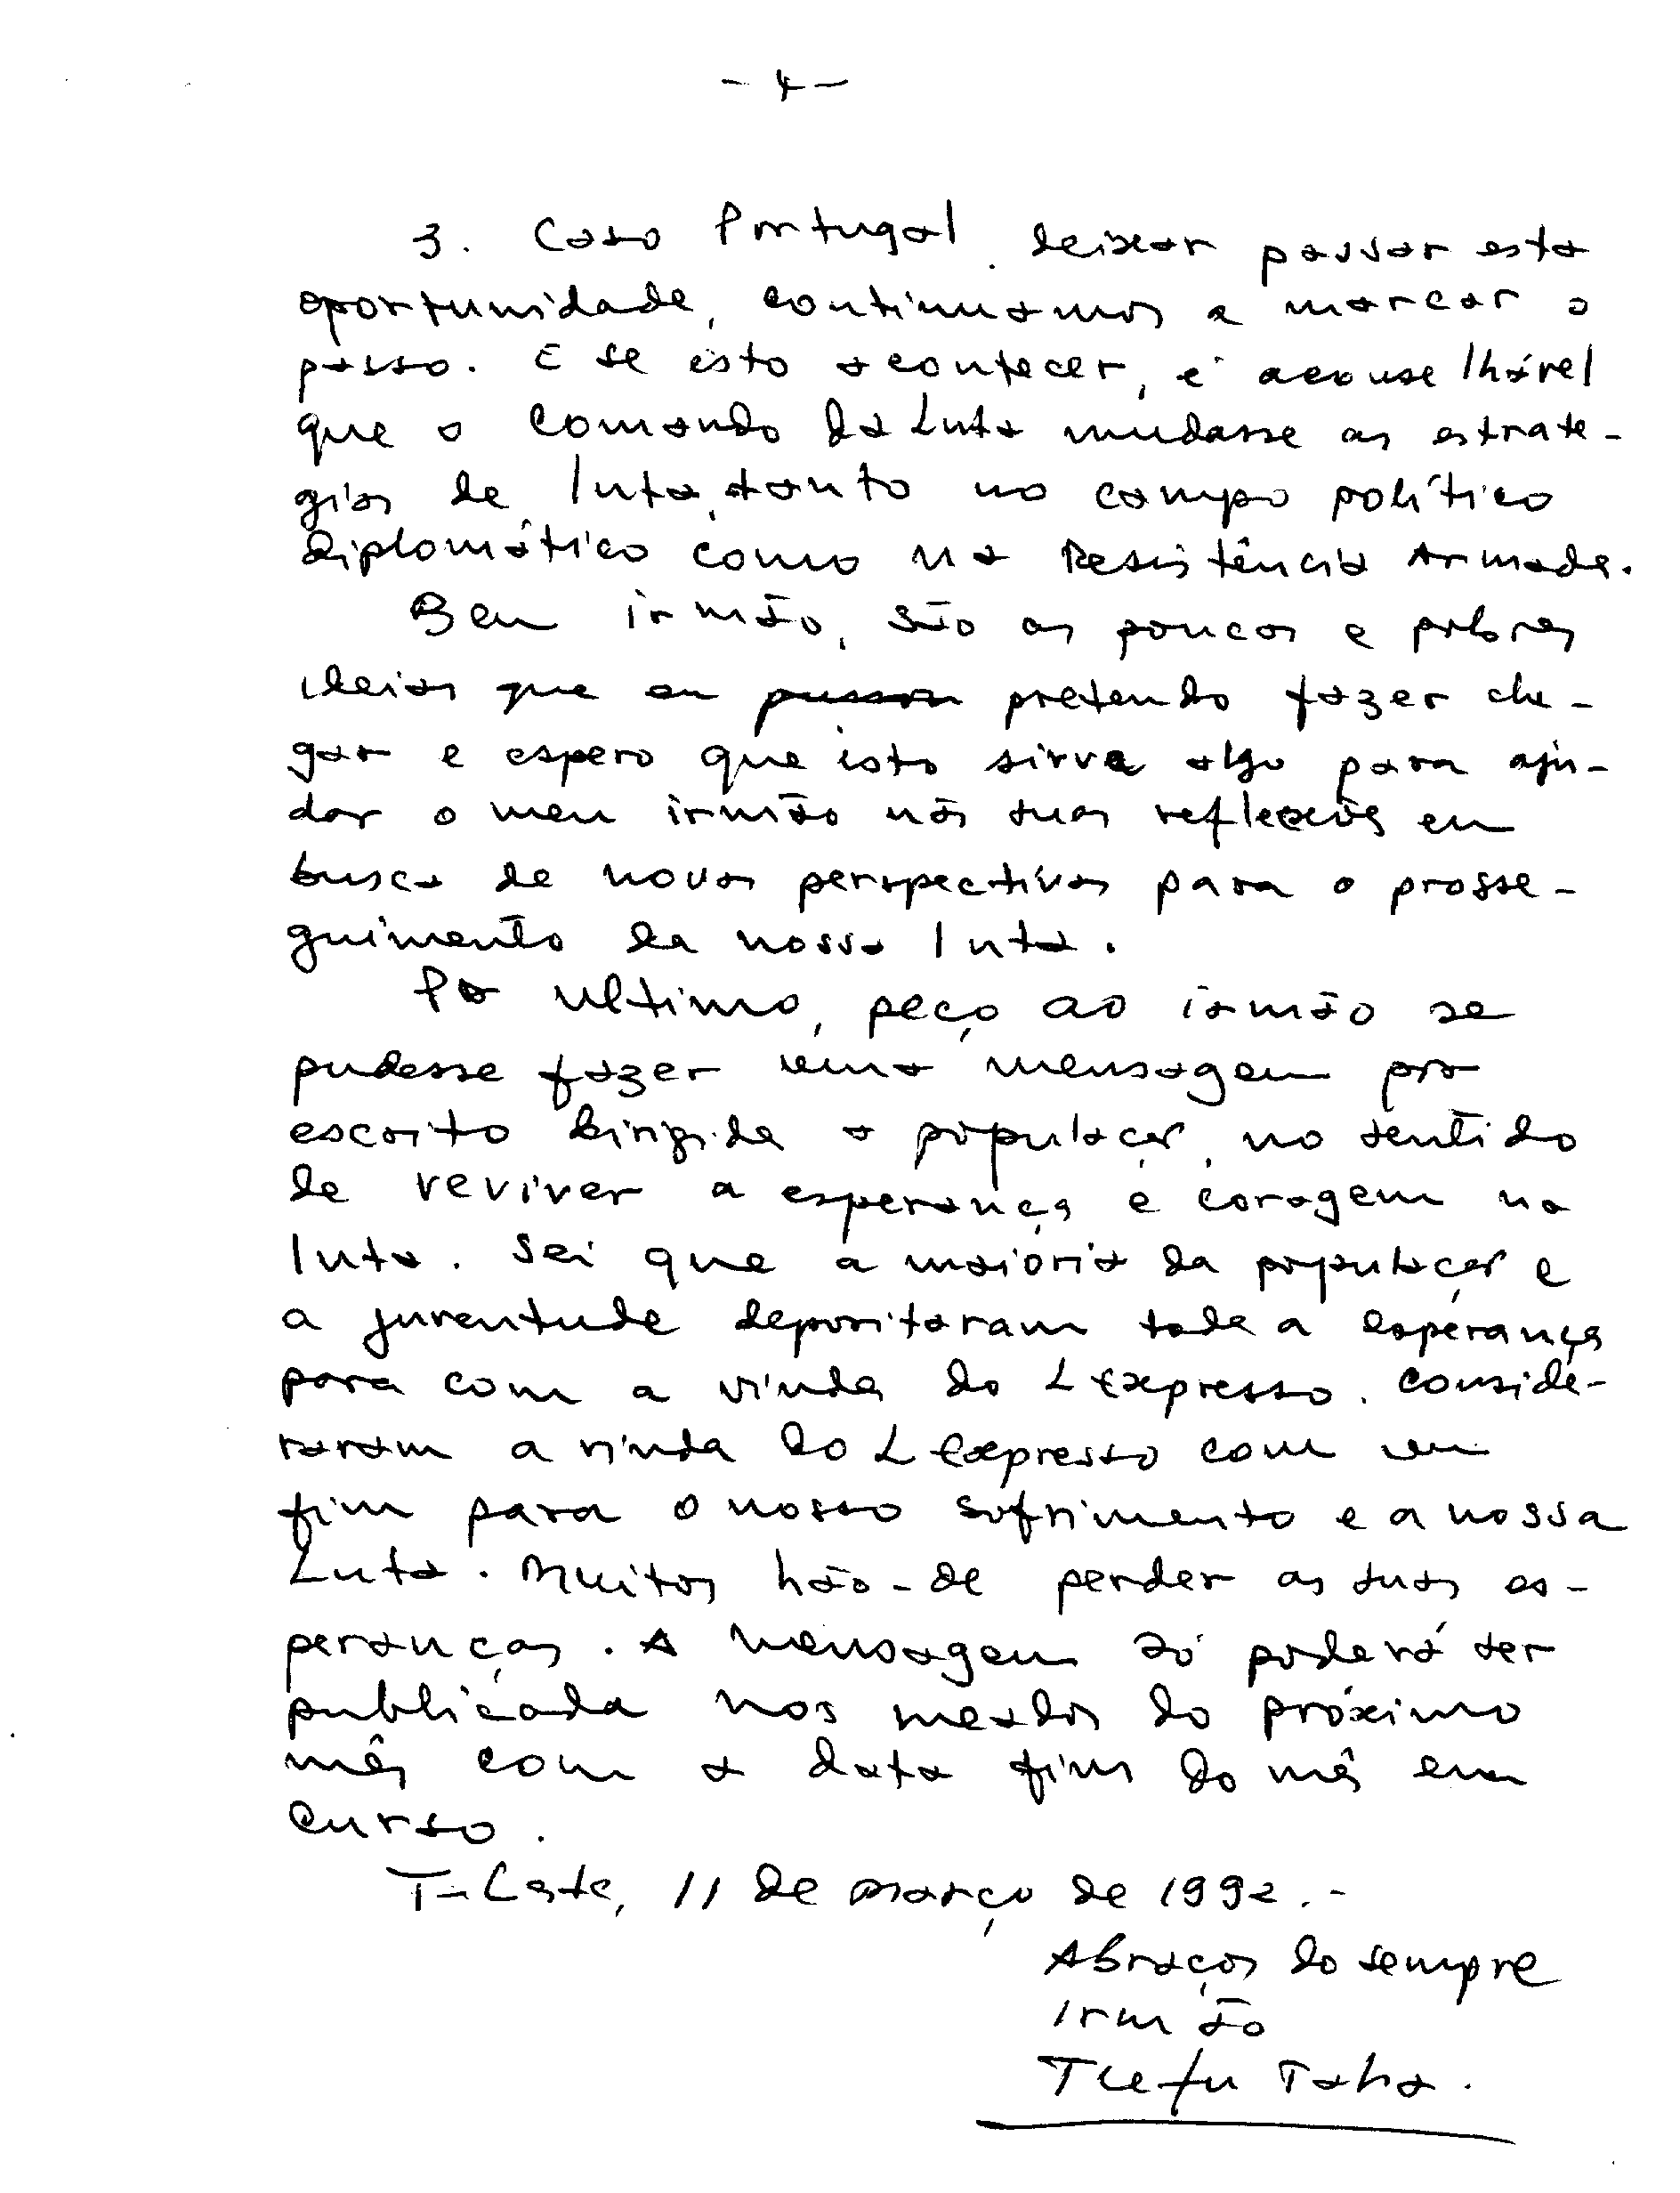 - 4 -
3. Caso Portugal deixar passar esta
oportunidade, continuamos a marcar o
passo. E se isto acontecer, é aconselhável
que o Comando da Luta mudasse as estraté-
gias de luta, tanto no campo político
diplomático como na Resistência Armada.
Bem irmão, são as poucas e pobres
ideias que eu pretendo fazer che-
gar e espero que isto sirva algo para aju-
dar o meu irmão nas suas reflexões em
busca de novas perspectivas para o prosse-
guimento da nossa luta.
Por ultimo, peço ao irmão se
pudesse fazer uma mensagem por
escrito dirigida a população, no sentido
de reviver a esperança e coragem na
luta. Sei que a maioria da população e
a juventude depositaram toda a esperança
para com a vinda do L Expresso. Conside-
raram a vinda do L Expresso com um
fim para o nosso sofrimento e a nossa
Luta. Muitos hão-de perder as suas es-
peranças. A mensagem só poderá ser
publicada nos meados do próximo
mês com a data fins do mês em
curso.
T-Leste, 11 de Março de 1992.-
Abraços do sempre
Irmão